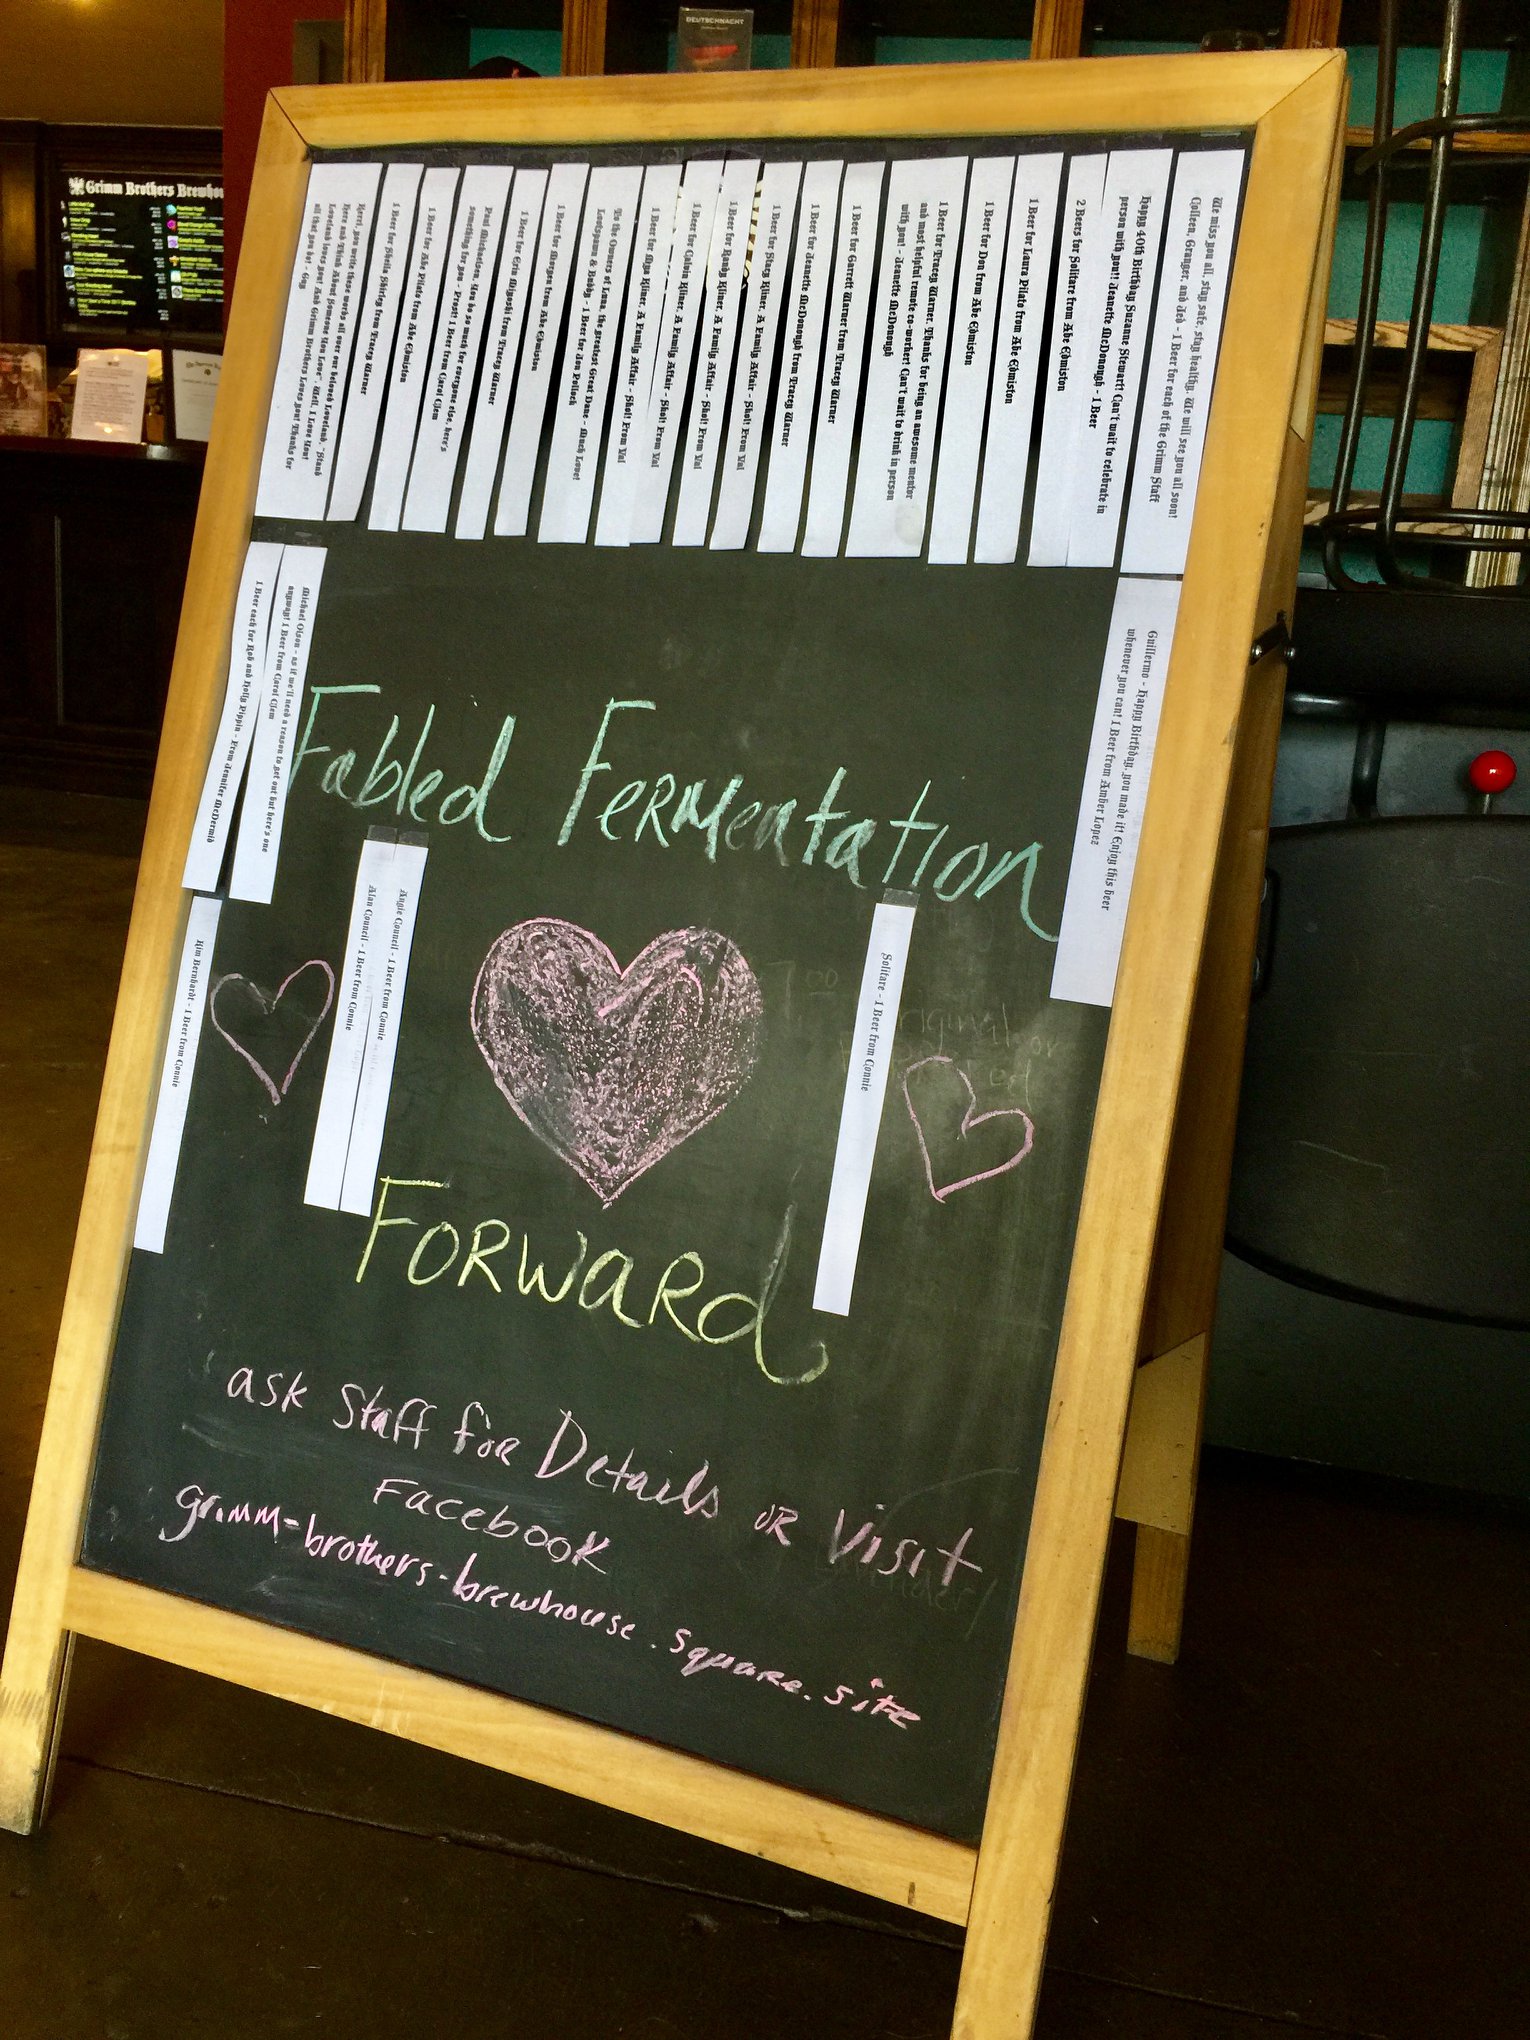 DEUTSCHNACHT
Grimm Brothers Brewhou
all that you do! - Guy
Loveland loves you! And Grimm Brothers Loves you! Thanks for
Here and Think About Someone You Love". Well, I Love You!
Kerri, you write these words all over our beloved Loveland, "Stand
1 Beer for Sheila Shirley from Tracey Warner
1 Beer for Abe Pilato from Abe Edmiston
something for you - Prost! 1 Beer from Carol Clem
Paul Michaelsen, You do so much for everyone else, here's
1 Beer for Erin Miyoshi from Tracey Warner
1 Beer for Morgen from Abe Edmiston
Lovespawn & Buddy - 1 Beer for Jon Pollock
To the Owners of Luna, the greatest Great Dane - Much Love!
1 Beer for Mya Kliner, A Family Affair - Shot! From Val
1 Beer for Calvin Kliner, A Family Affair - Shot! From Val
1 Beer for Randy Kliner, A Family Affair - Shot! From Val
1 Beer for Stacy Kliner, A Family Affair - Shot! From Val
1 Beer for Jeanette McDonough from Tracey Warner
1 Beer for Garrett Warner from Tracey Warner
with you! - Jeanette McDonough
and most helpful remote co-worker! Can't wait to drink in person
1 Beer for Tracey Warner. Thanks for being an awesome mentor
1 Beer for Don from Abe Edmiston
1 Beer for Laura Pilato from Abe Edmiston
2 Beers for Solitare from Abe Edmiston
person with you!! Jeanette McDonough - 1 Beer
Happy 40th Birthday Suzanne Stewart! Can't wait to celebrate in
Colleen, Granger, and Jed - 1 Beer for each of the Grimm Staff
We miss you all, stay safe, stay healthy. We will see you all soon!
1 Beer each for Rob and Holly Pippin - From Jennifer McDermid
anyway! 1 Beer from Carol Clem
Michael Olson - as if we'll need a reason to get out but here's one
whenever you can! 1 Beer from Amber Lopez
Guillermo - Happy Birthday, you made it! Enjoy this beer
Fabled Fermentation
Kim Bernhardt - 1 Beer from Connie
Alan Council - 1 Beer from Connie
Angie Council - 1 Beer from Connie
Solitare - 1 Beer from Connie
Forward
ask Staff for Details or Visit
Facebook
grimm-brothers-brewhouse.square.site